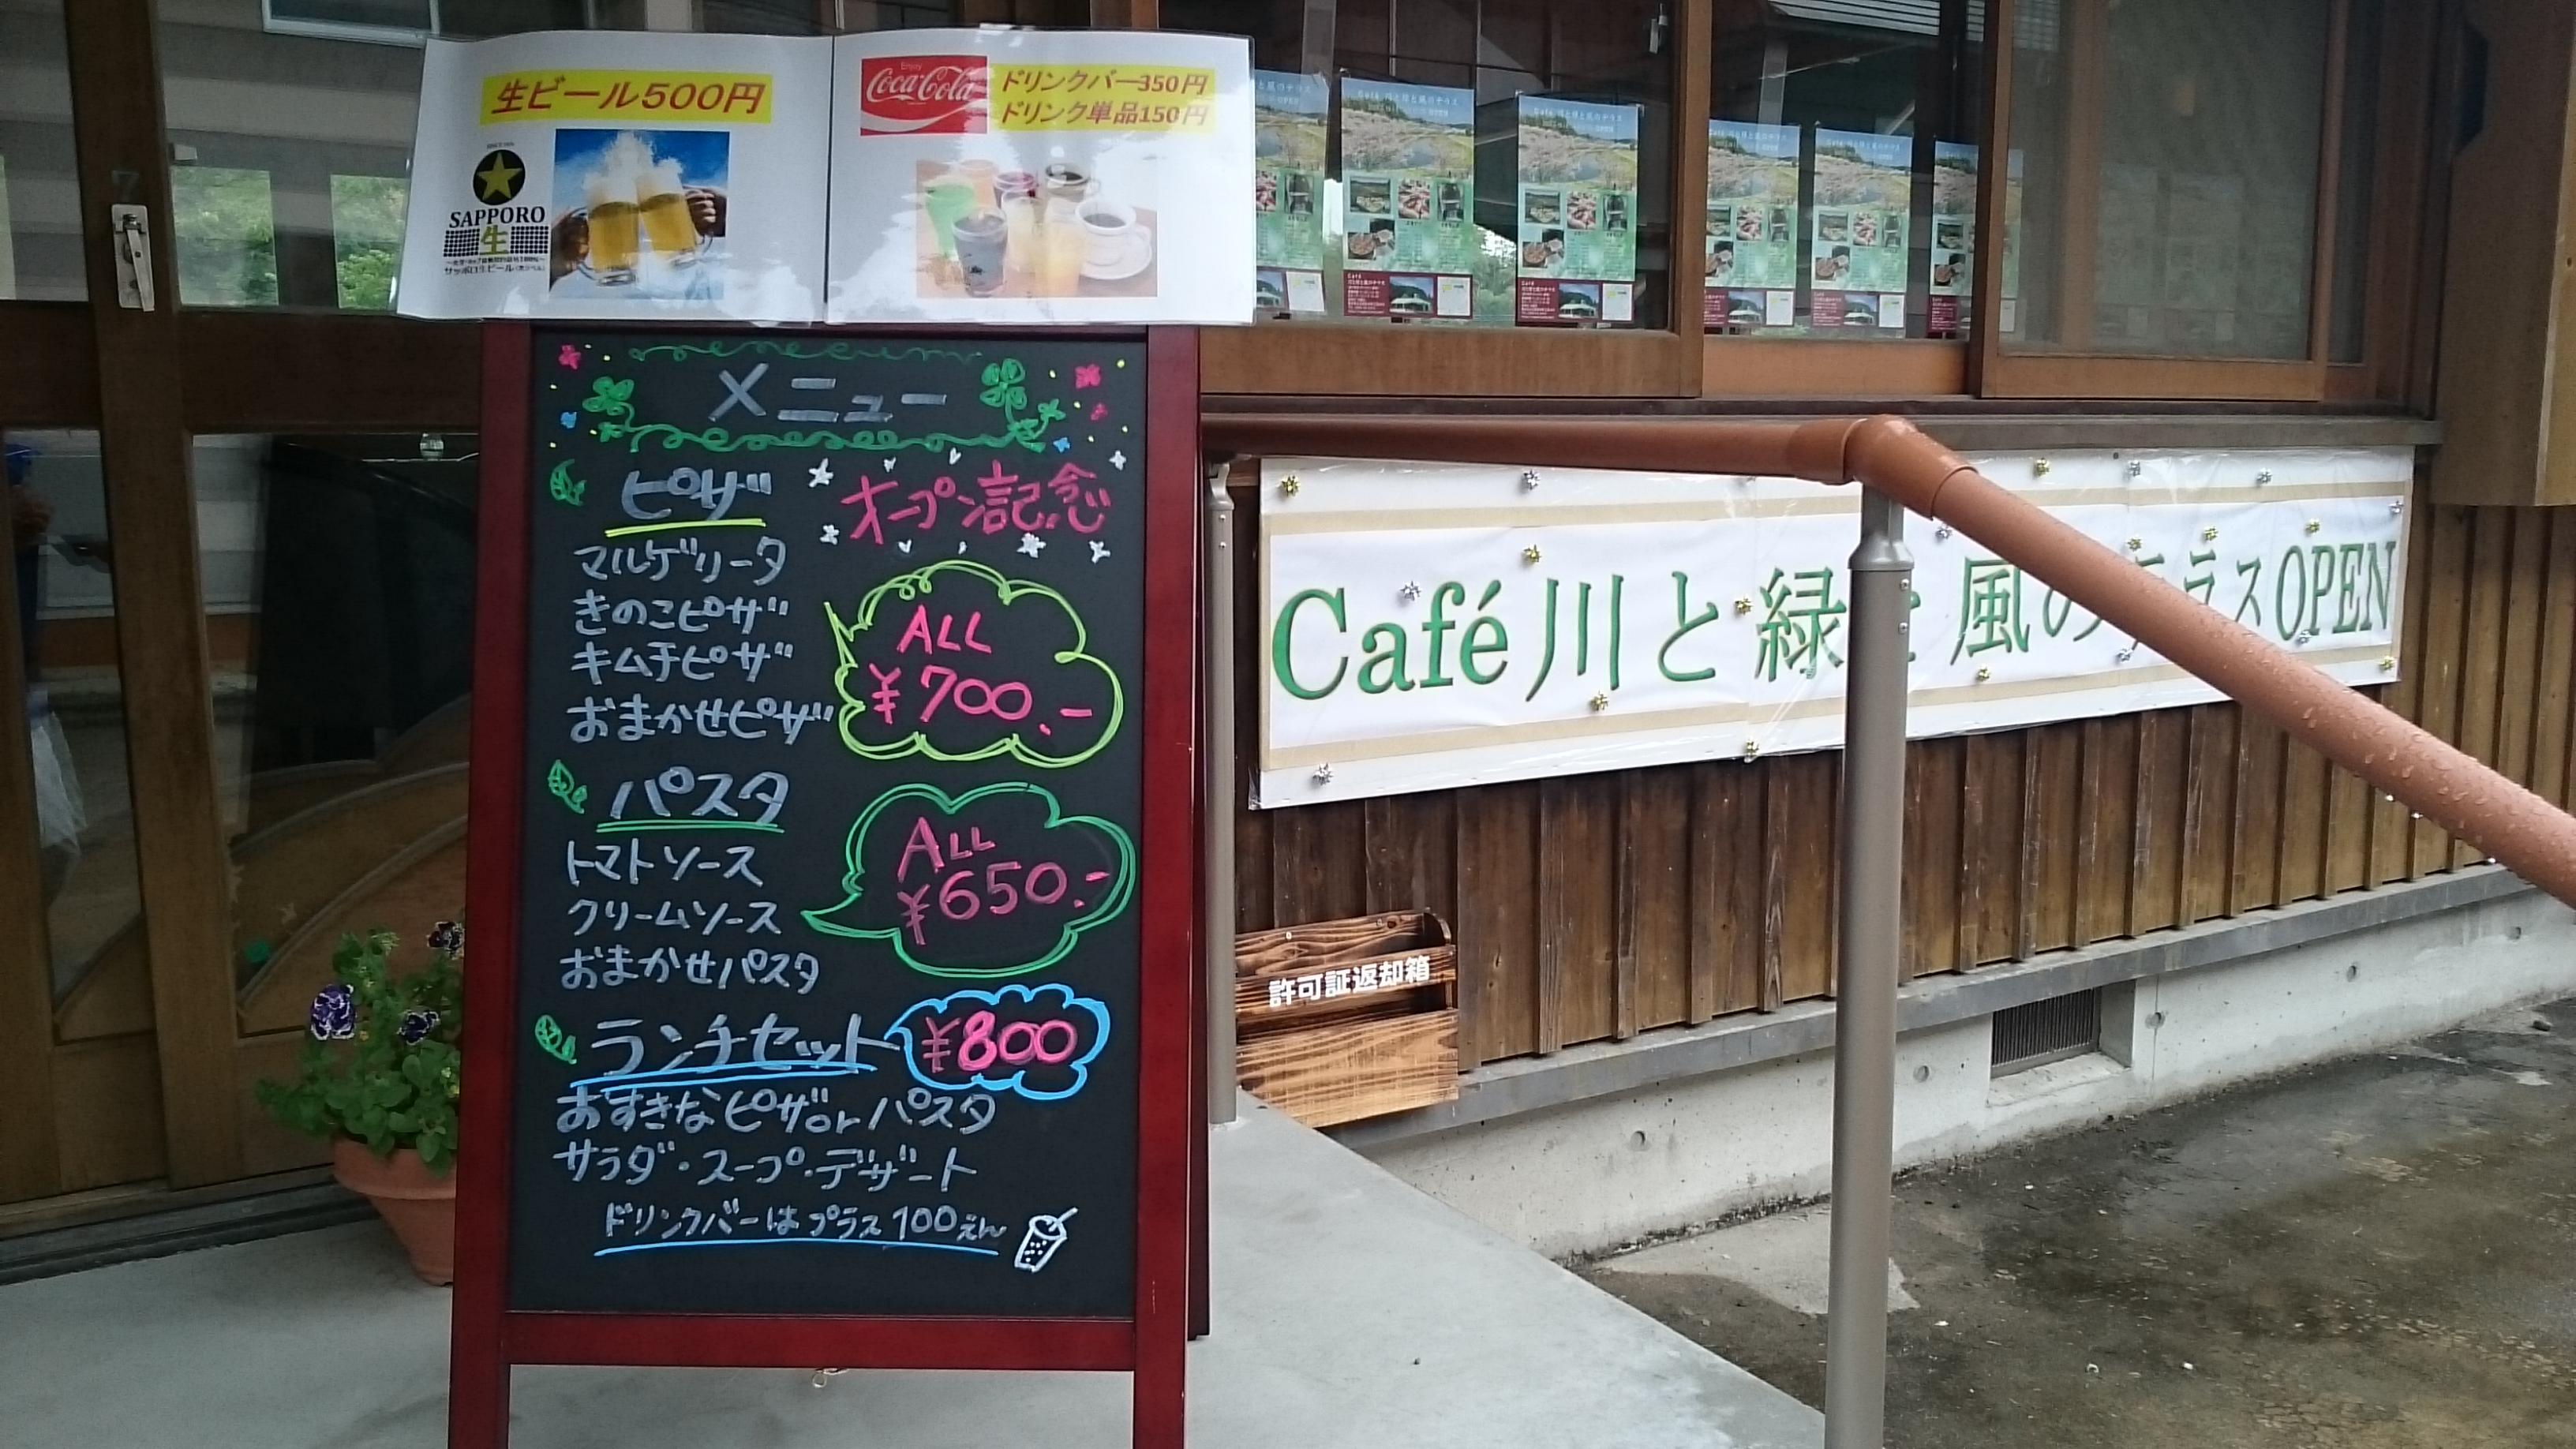 生ビール500円
SAPPORO
生
サッポロ生ビール
Enjoy
Coca-Cola
ドリンクバー350円
ドリンク単品150円
メニュー
オープン記念
ピザ
マルゲリータ
きのこピザ
キムチピザ
おまかせピザ
ALL
¥700.-
パスタ
トマトソース
クリームソース
おまかせパスタ
ALL
¥650.-
ランチセット ¥800
おすきなピザorパスタ
サラダ・スープ・デザート
ドリンクバーはプラス100えん
Café 川と緑と風のテラスOPEN
許可証返却箱